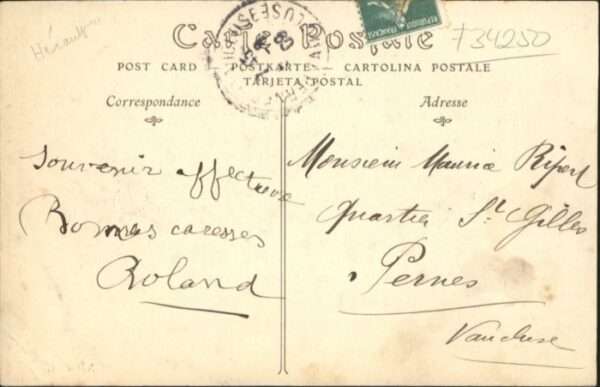 Hérault
F34250
Carte Postale
POST CARD — POSTKARTE — CARTOLINA POSTALE
TARJETA POSTAL
Correspondance
Adresse
Souvenir affectueux
Bonnes caresses
Roland
Monsieur Maurice Ripert
Quartier St Gilles
Pernes
Vaucluse